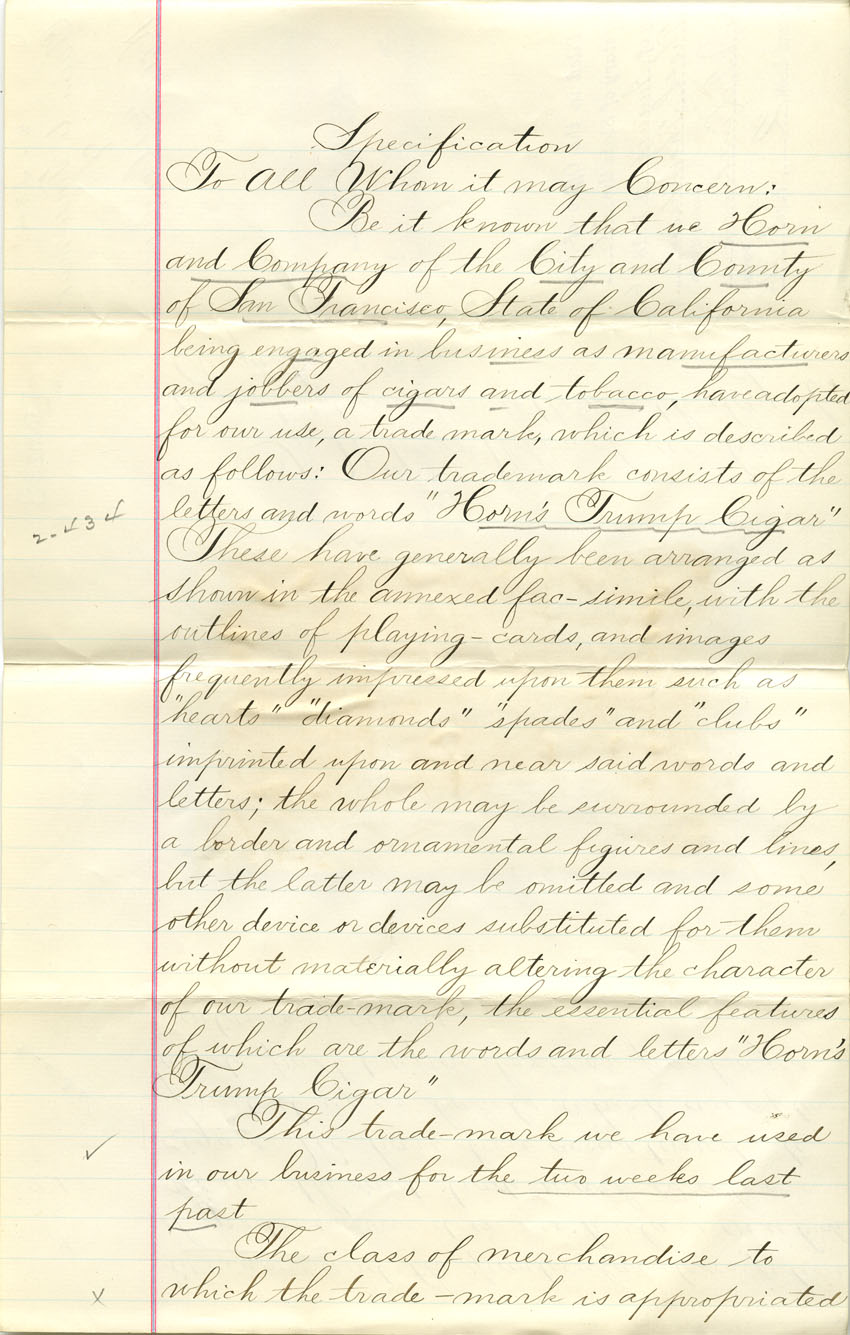 Specification
To All Whom it may Concern:
Be it known that we Horn
and Company of the City and County
of San Francisco, State of California
being engaged in business as manufacturers
and jobbers of cigars and tobacco, have adopted
for our use, a trade mark, which is described
as follows: Our trademark consists of the
letters and words "Horn's Trump Cigar"
2-434
These have generally been arranged as
shown in the annexed fac-simile, with the
outlines of playing-cards, and images
frequently impressed upon them such as
"hearts" "diamonds" "spades" and "clubs"
imprinted upon and near said words and
letters; the whole may be surrounded by
a border and ornamental figures and lines,
but the latter may be omitted and some
other device or devices substituted for them
without materially altering the character
of our trade-mark, the essential features
of which are the words and letters "Horn's
Trump Cigar"
This trade-mark we have used
in our business for the two weeks last
past
The class of merchandise to
which the trade-mark is appropriated